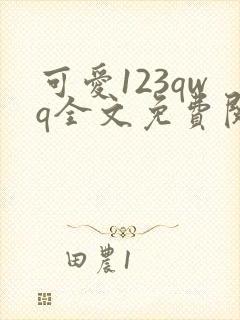 可愛123qw
q全文免費
田農1